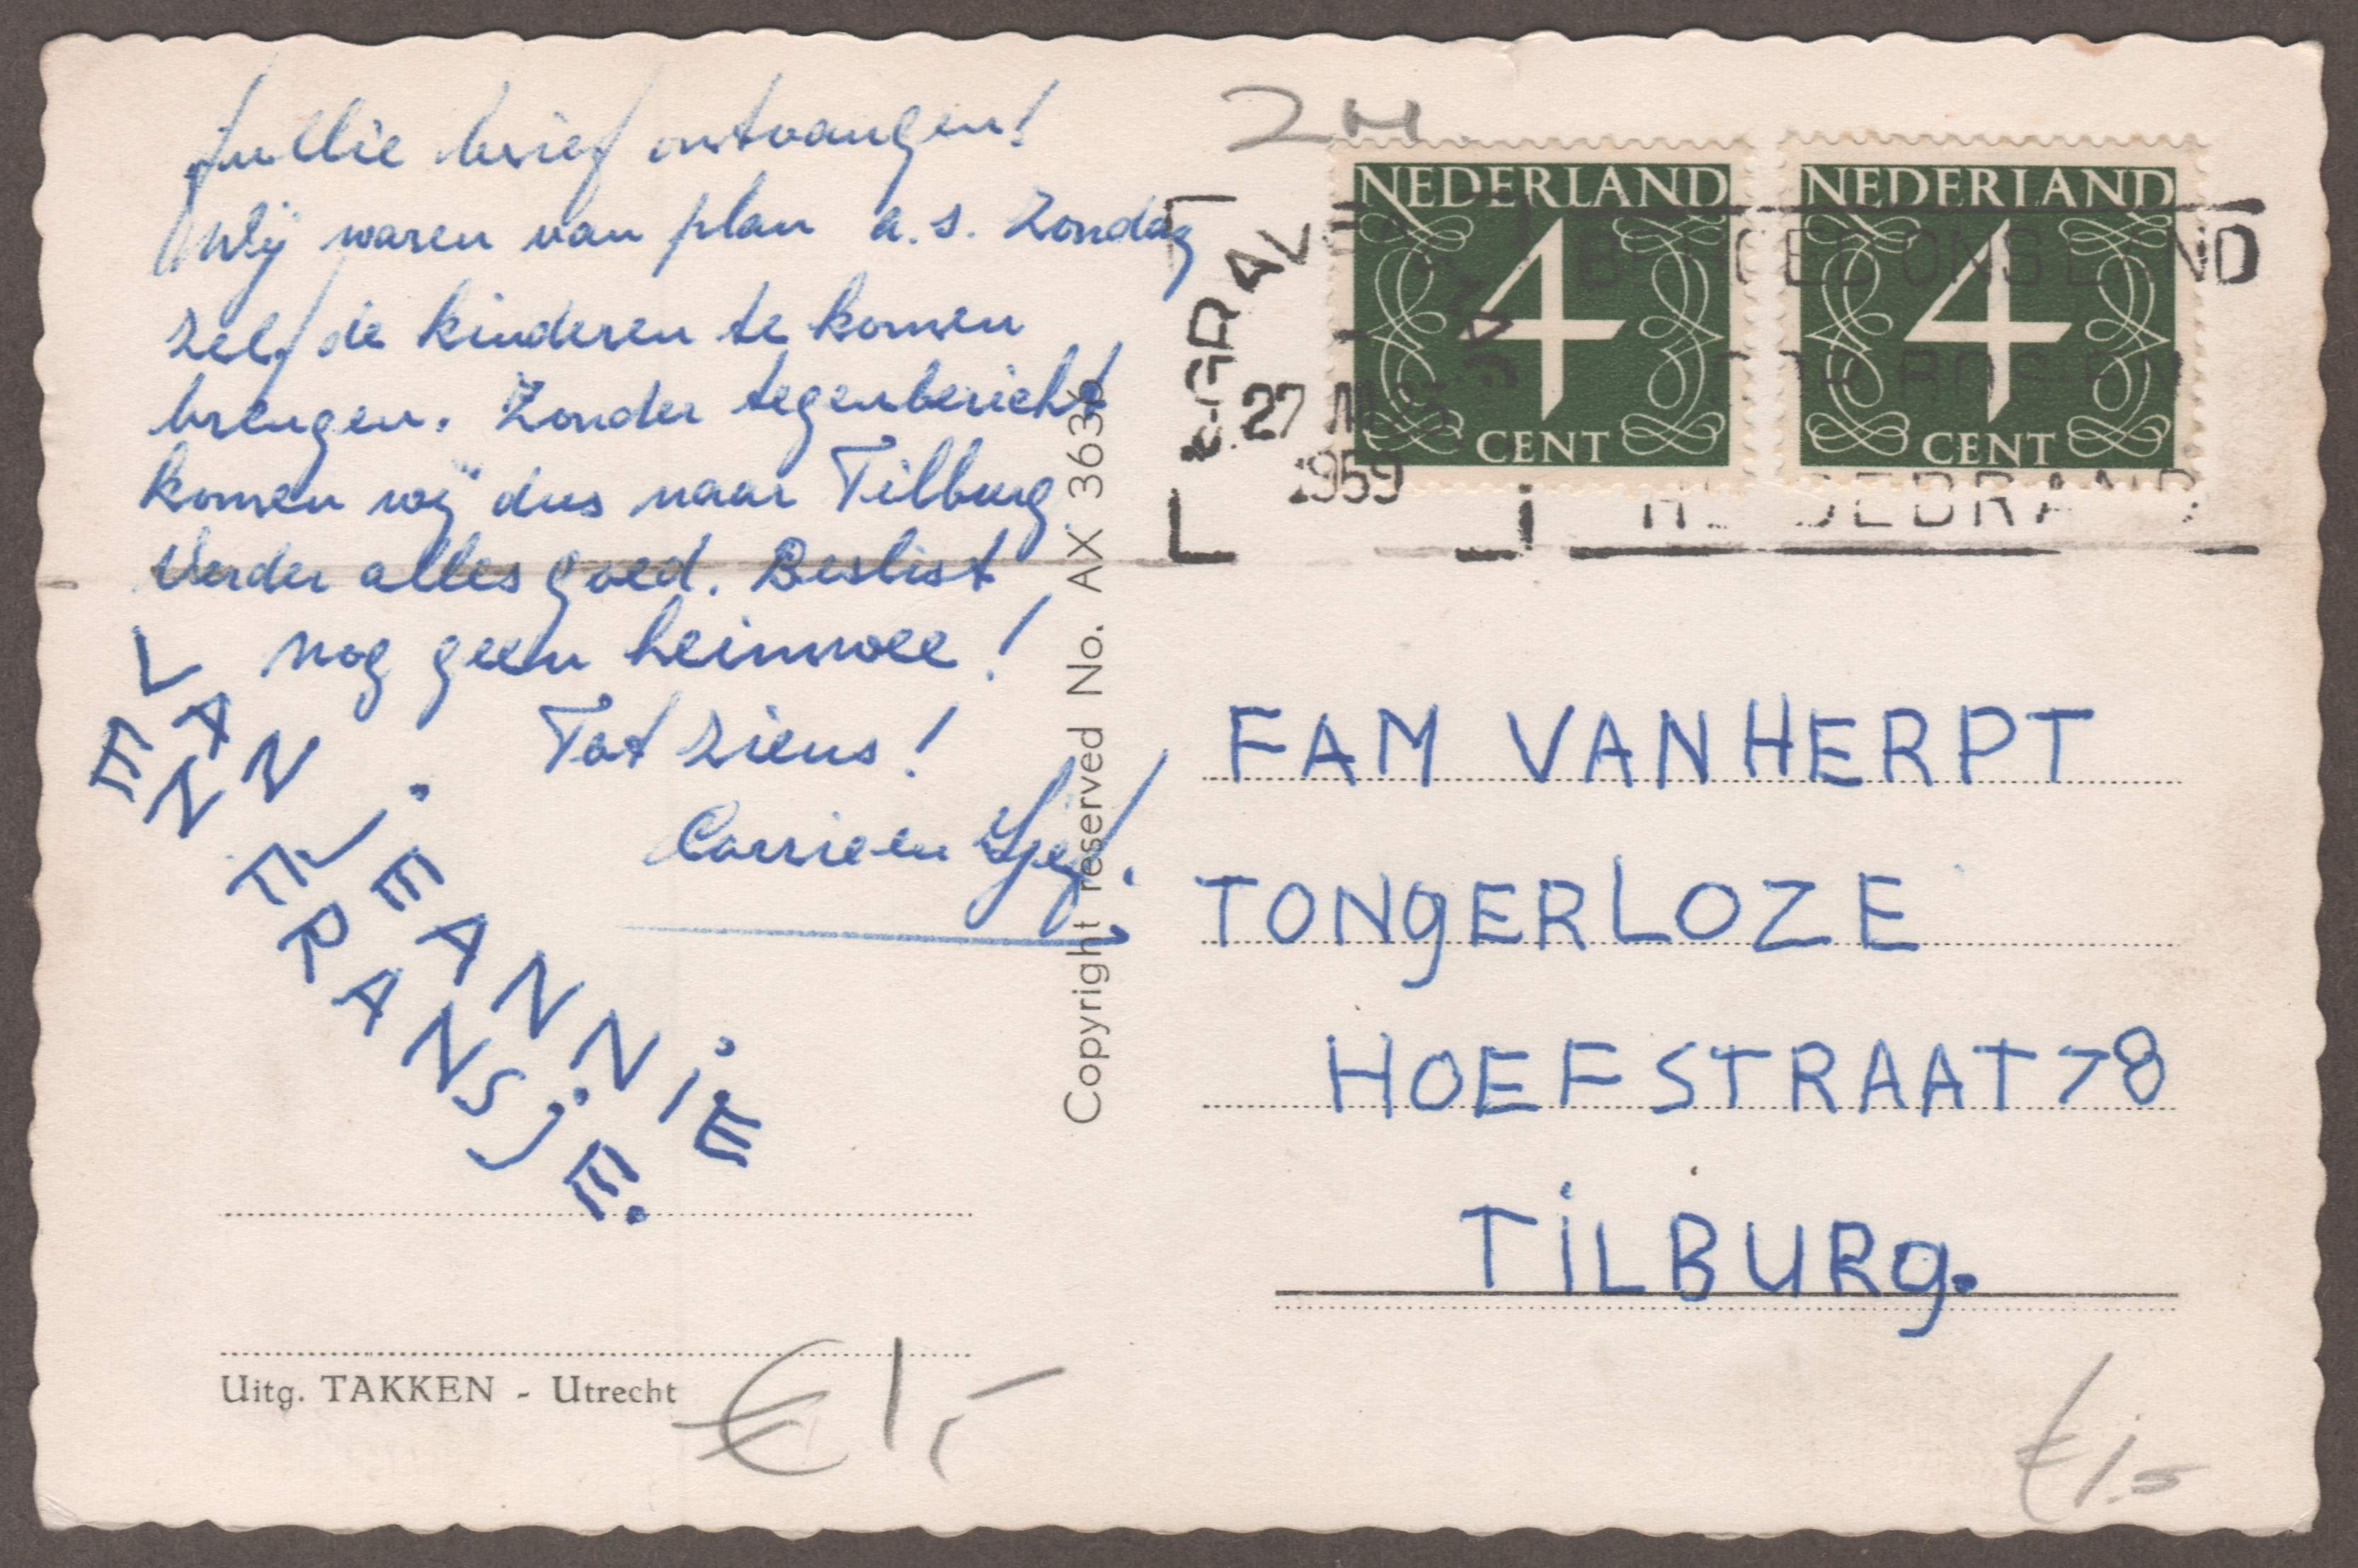 Jullie brief ontvangen!
Wij waren van plan a.s. Zondag
zelf de kinderen te komen
brengen. Zonder tegenbericht
komen wij dus naar Tilburg.
Verder alles goed. Beslist
nog geen heimwee!
Tot ziens!
Carrie en Sjef.
LAN JEANNIE
EN FRANSJE.
Uitg. TAKKEN - Utrecht
€ 1,-
Copyright reserved No. AX 3636
2H
NEDERLAND
4
CENT
NEDERLAND
4
CENT
27
1959
FAM VAN HERPT
TONgERLOZE
HOEFSTRAAT 78
TiLBURg.